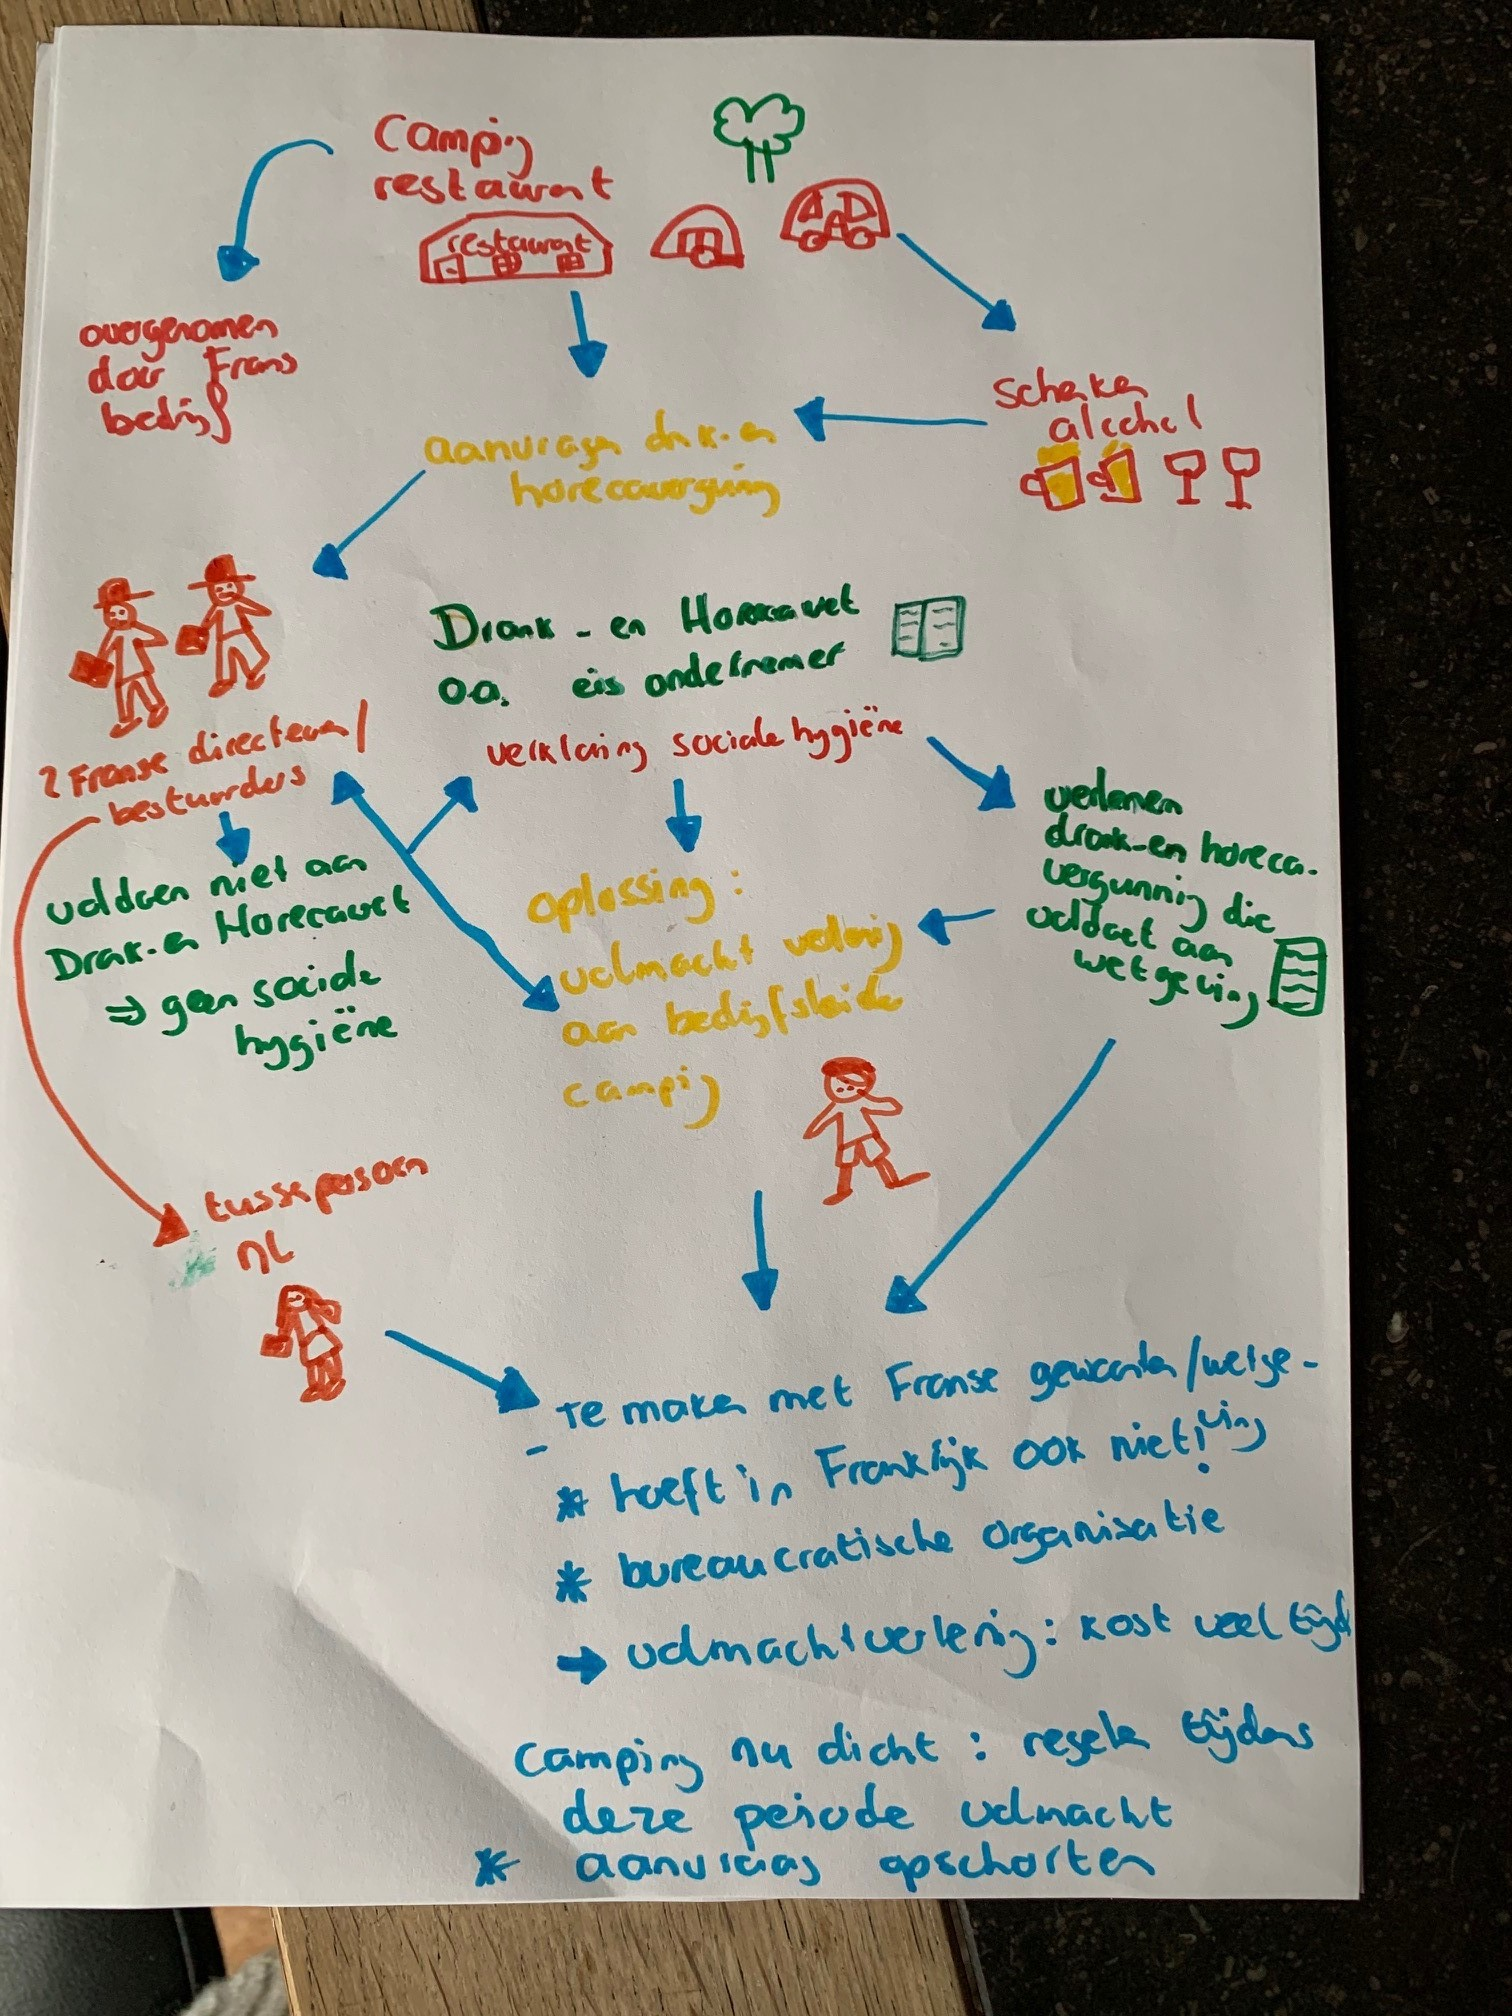 Camping
restaurant
restaurant
overgenomen
door Frans
bedrijf
schenken
alcohol
aanvragen drank-en
horecavergunning
Drank-en Horecawet
o.a. eis ondernemer
verklaring sociale hygiëne
2 Franse directeuren/
bestuurders
voldoen niet aan
Drank-en Horecawet
⇒ geen sociale
hygiëne
oplossing:
volmacht verlening
aan bedrijfsleider
camping
verlenen
drank-en horeca-
vergunning die
voldoet aan
wetgeving
tussenpersoon
NL
- Te maken met Franse gewoonten/wetge-
ving
* hoeft in Frankrijk ook niet!
* bureaucratische organisatie
→ volmachtverlening: kost veel tijd
Camping nu dicht: regelen tijdens
deze periode volmacht
* aanvraag opschorten